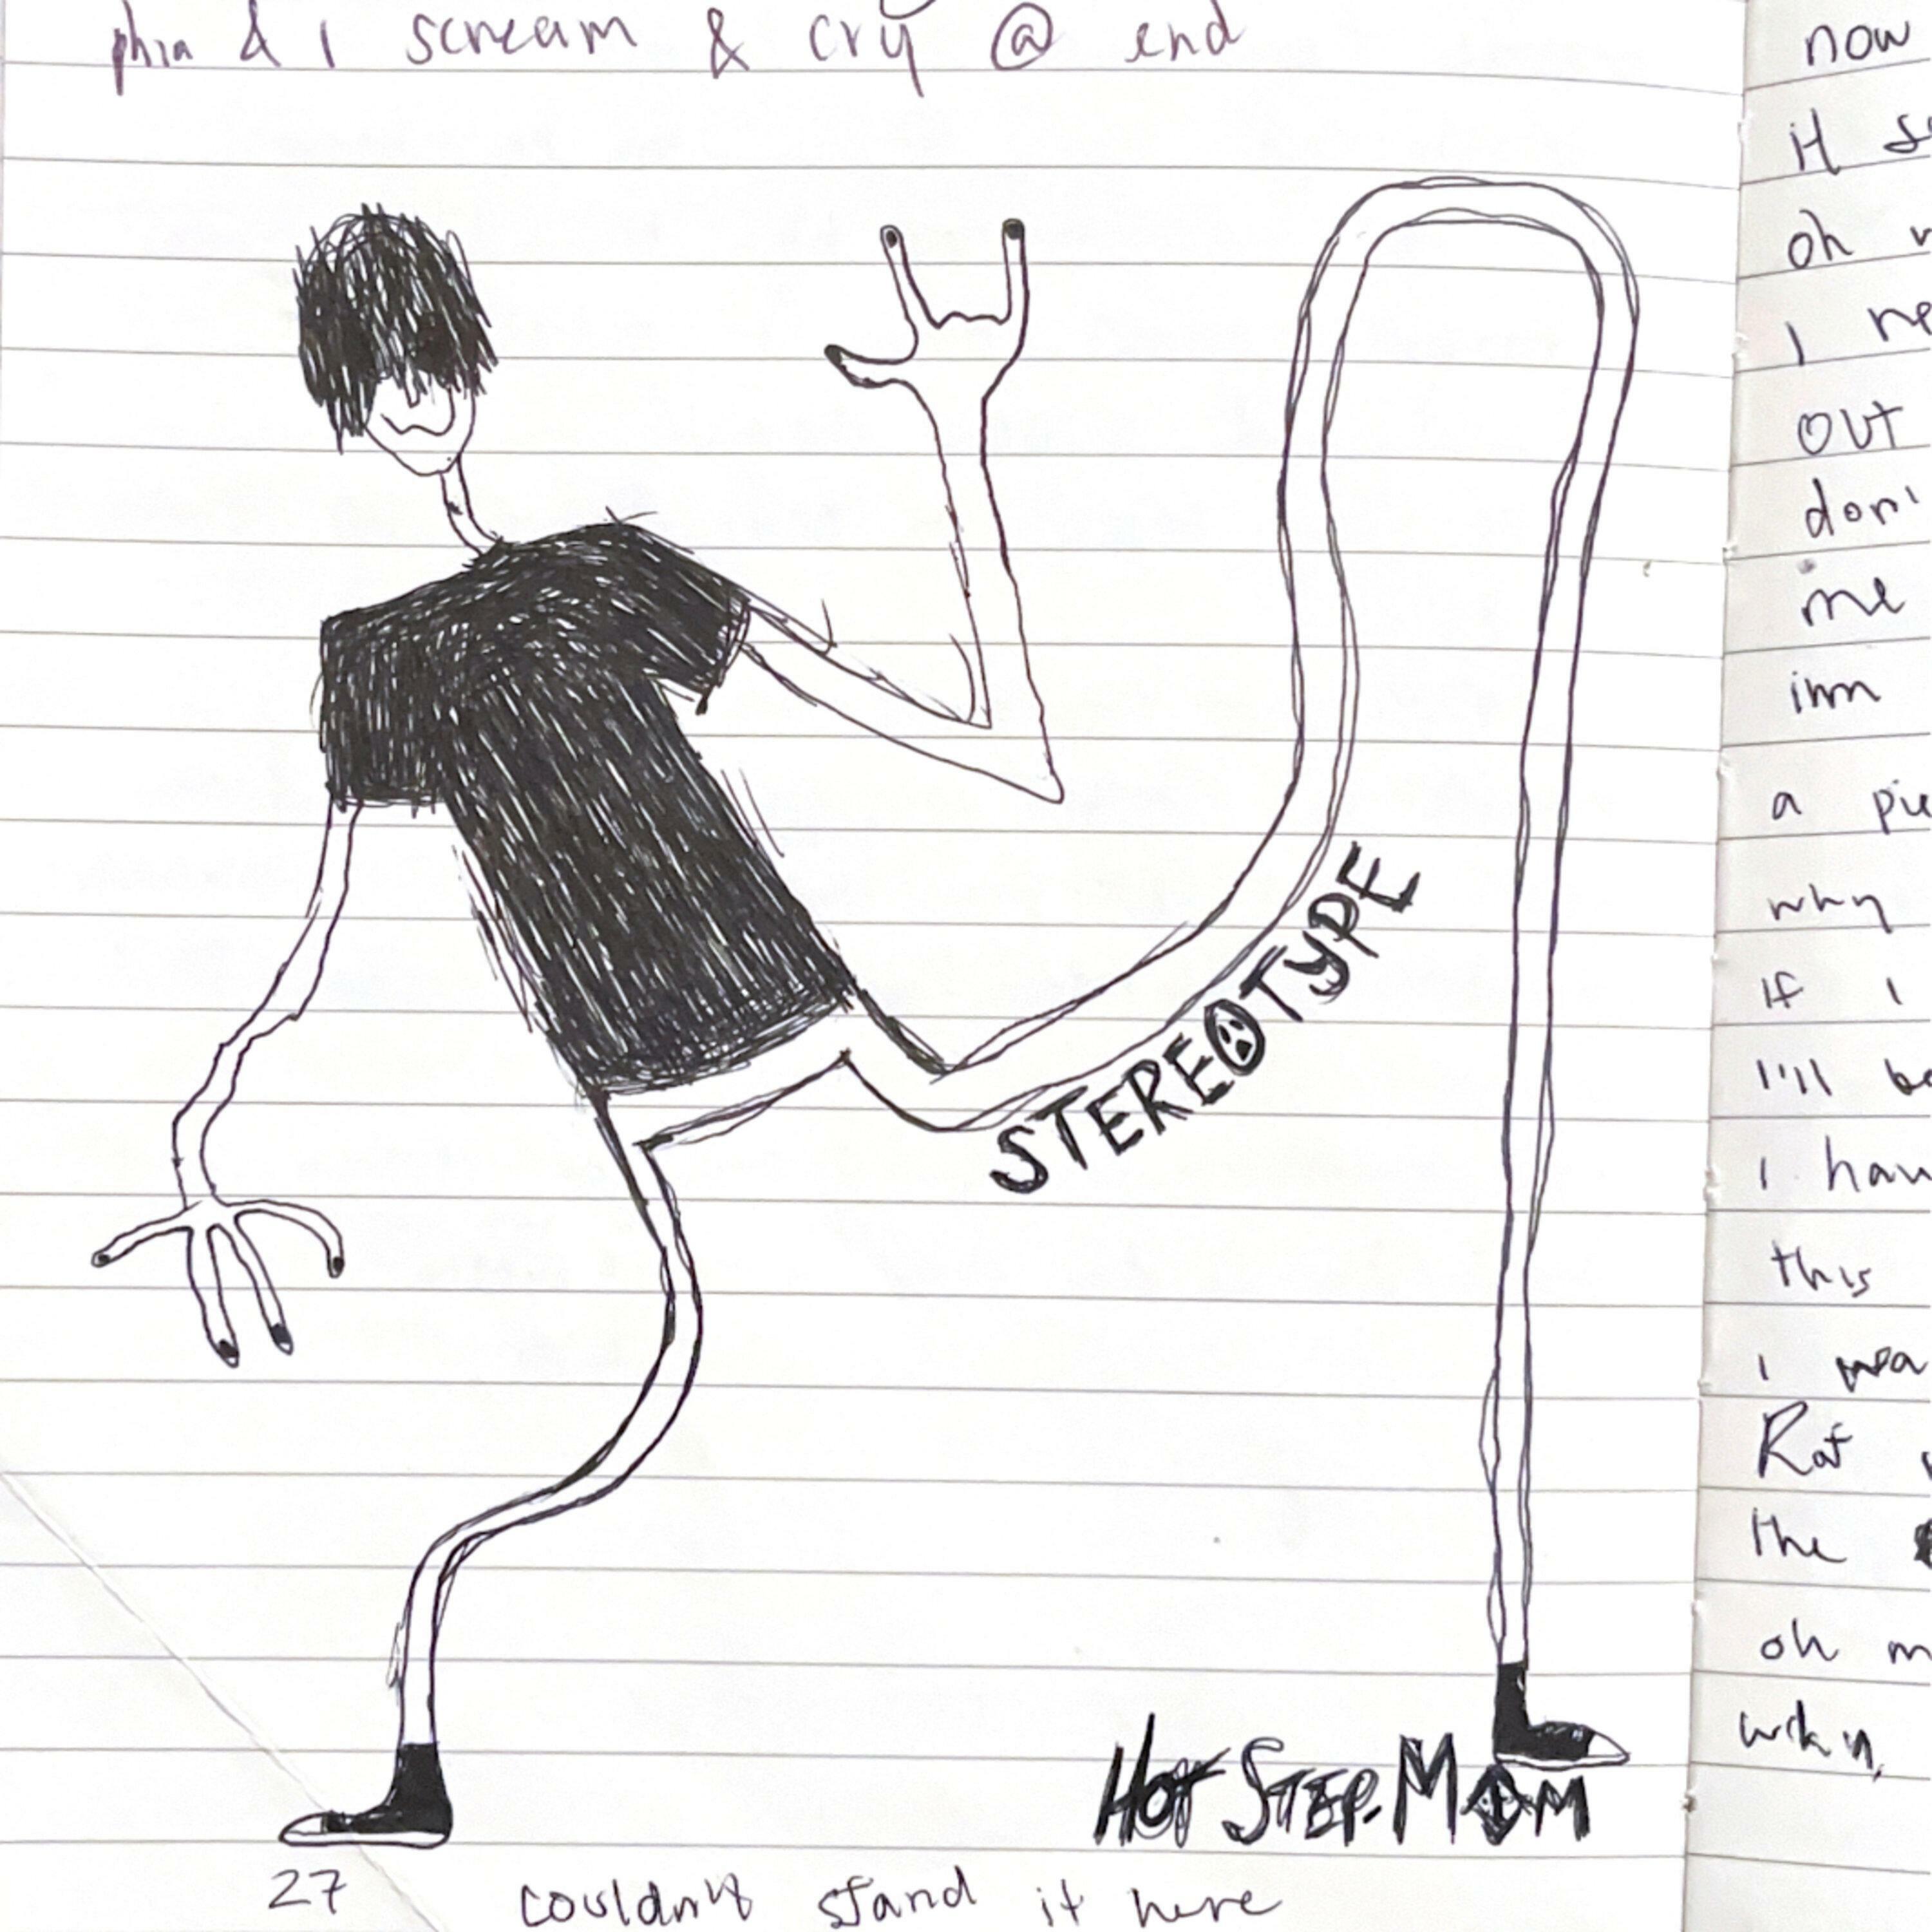 phia & I scream & cry @ end
STEREOTYPE
HOT STEP-MOM
27 couldn't stand it here
now
it
oh
I
out
me
a
why
if I
I'll
I
this
I
Rat
the
oh